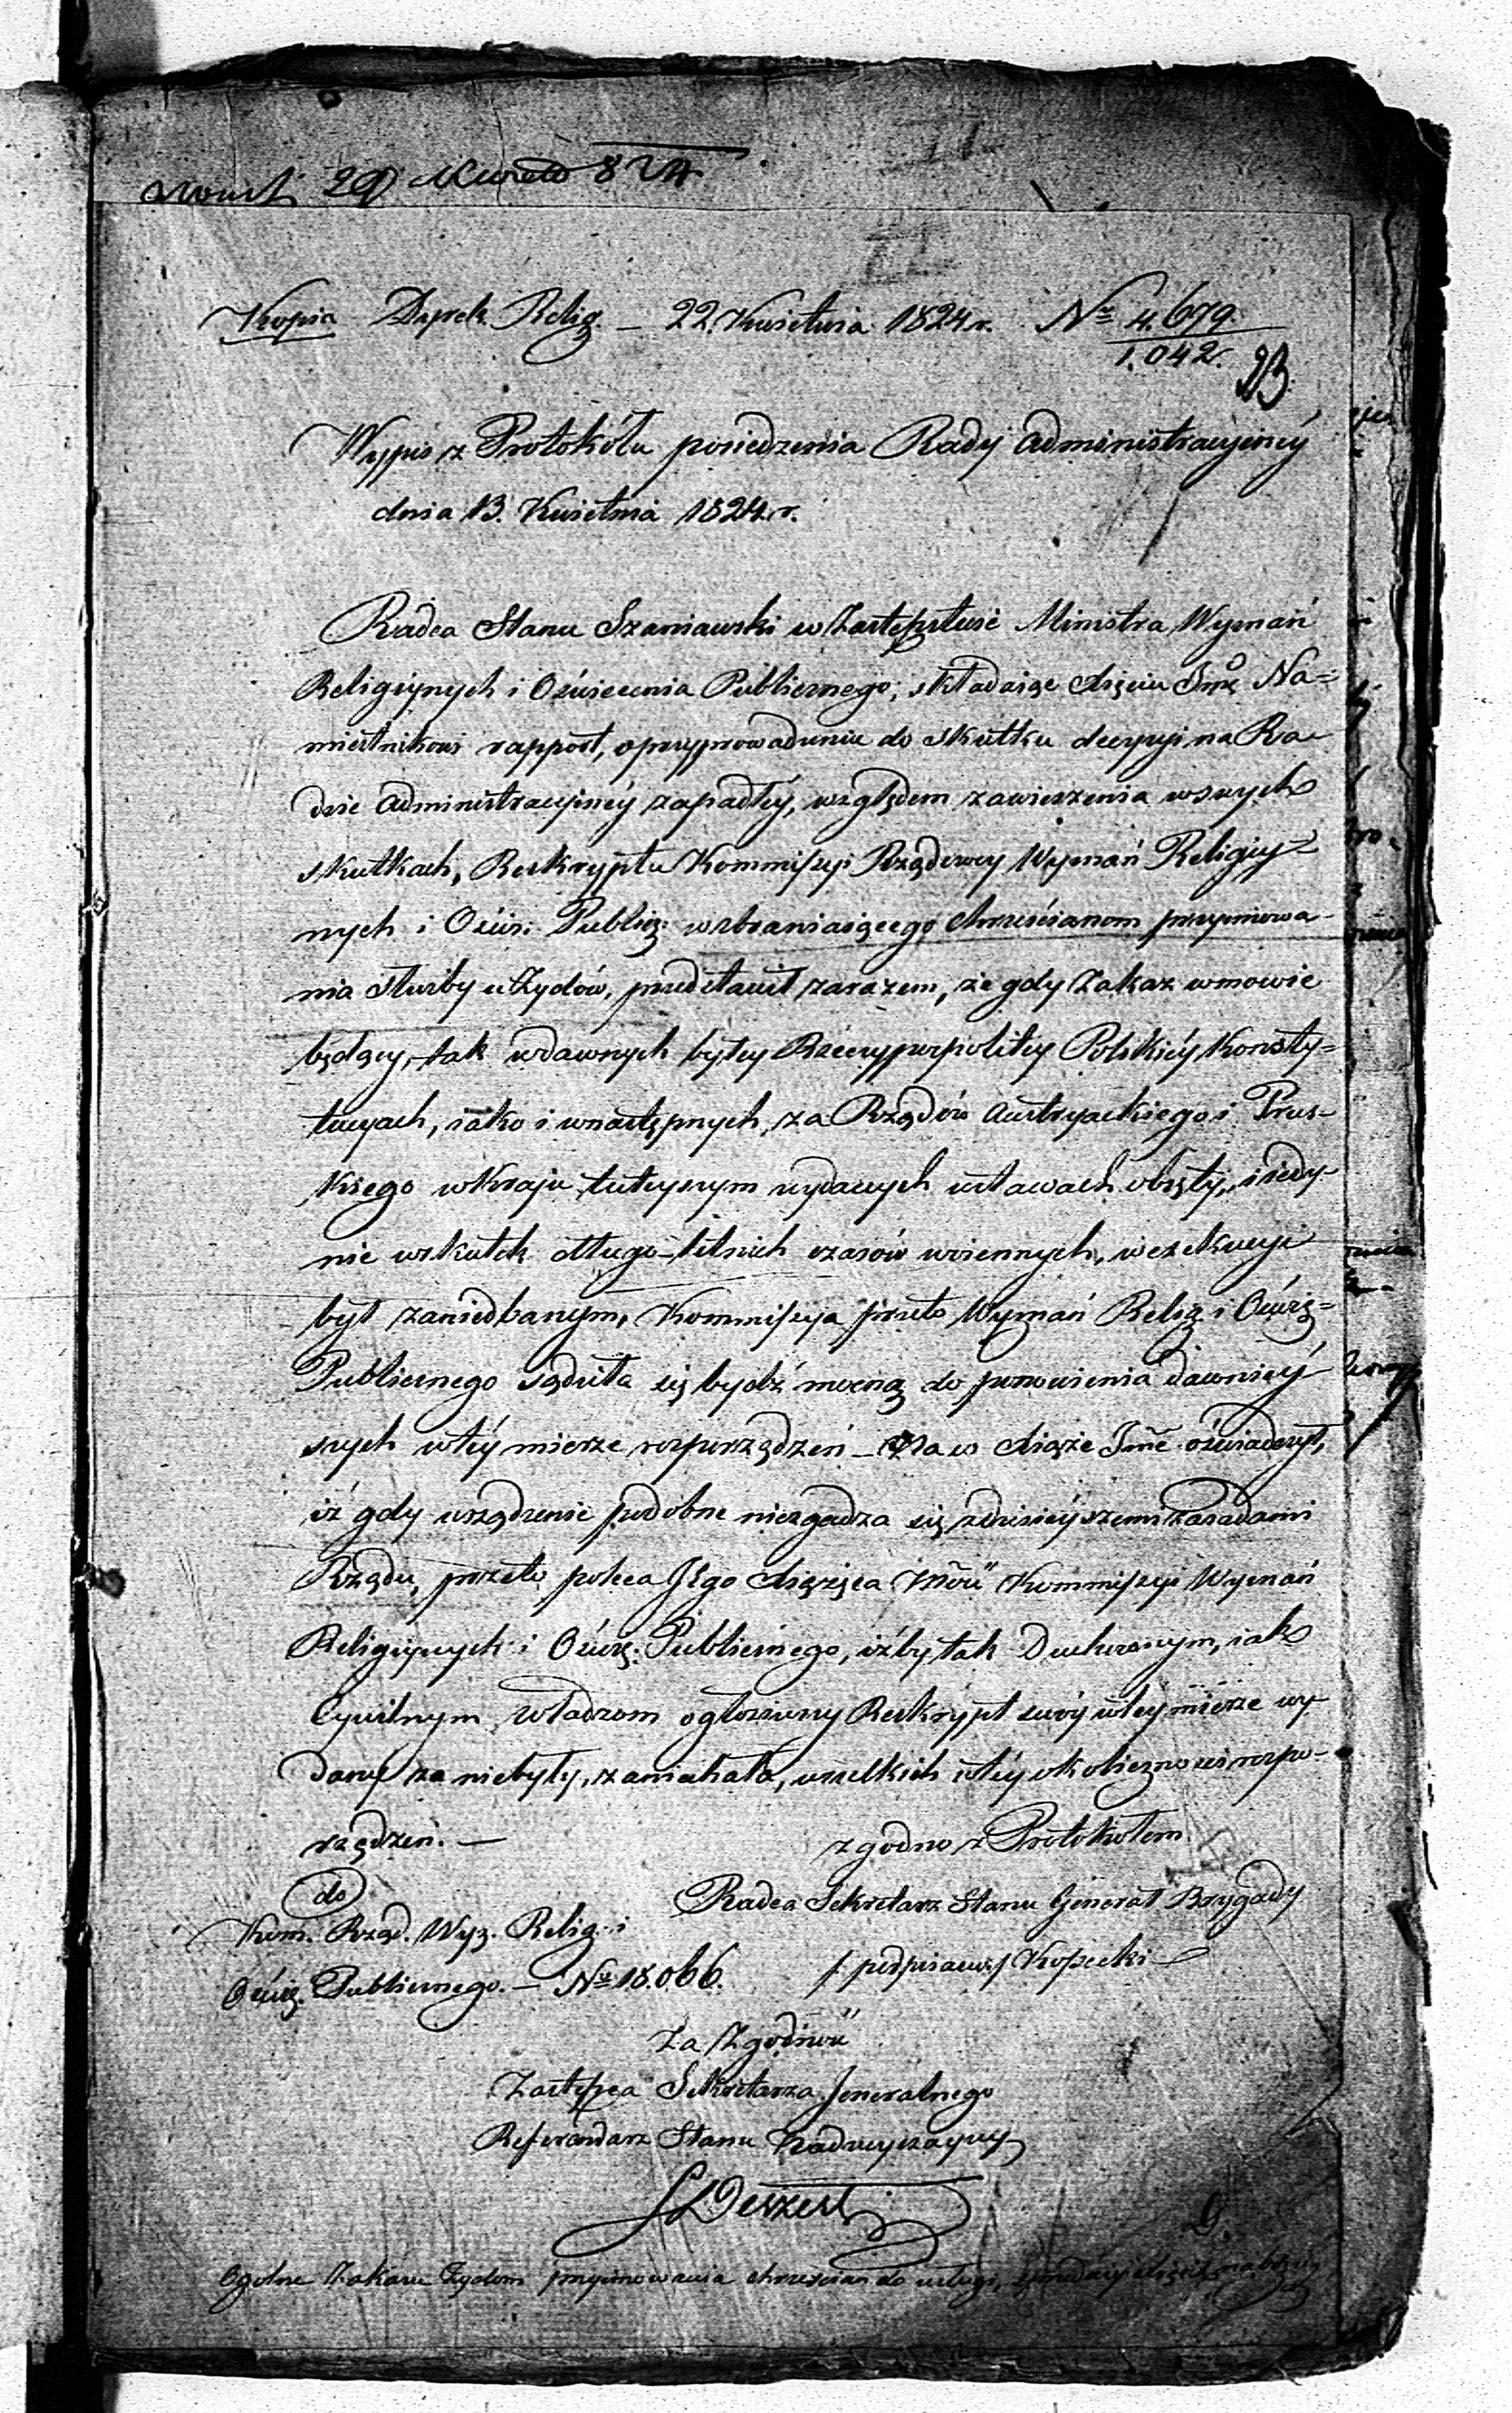 29 824
Kopia Dyrek. Relig. — 22. Kwietnia 1824 r. Nº 4.679.
1.042.
23
Wypis z Protokółu posiedzenia Rady Administracyiney
dnia 13. Kwietnia 1824. r.
Radca Stanu Szaniawski w Zastępstwie Ministra Wyznań
Religiynych i Oświecenia Publicznego, składaiąc Xięciu Jmć Na=
miestnikowi rapport, o przyprowadzeniu do skutku decyzyi na Ra-
dzie Administracyiney zapadłéy, względem zawieszenia w swych
skutkach, Reskryptu Kommissyi Rządowey Wyznań Religiy=
nych i Oświe: Publicz: wzbraniaiącego chrześcianom przyimowa-
nia służby u Żydów, przedstawił zarazem, że gdy Zakaz w mowie
będący, tak w dawnych byłey Rzeczypospolitey Polskiéy Konsty=
tucyach, iako i w następnych, za Rządów Austryackiego i Prus-
kiego w Kraju tuteyszym wydanych ustawach obięty, iedy-
nie w skutek długo-letnich czasów woiennych, w exekucyi
był zaniedbanym, Kommissya przeto Wyznań Relig. i Oświe=
Publicznego sądziła się bydź mocną do ponowienia dawniéy-
szych w téy mierze rozporządzeń — Na co Xiąże Jmć oświadczył,
iż gdy urządzenie podobne niezgadza się z dzisiéyszemi zasadami
Rządu, przeto poleca Jego Xiążęca Mość Kommissyi Wyznań
Religiynych i Oświe: Publicznego, iżby tak Duchownym, iako
Cywilnym Władzom ogłosiwszy Reskrypt swóy w téy mierze wy-
dany za niebyły, zaniechała, wszelkich w téy okoliczności rozpo-
rządzeń. —
zgodno z Protokółem
do
Kom. Rząd. Wyz. Relig. i
Radca Sekretarz Stanu Generał Brygady
Oświe. Publicznego. — Nº 18.066.
/podpisano/ Kossecki
Za Zgodność
Zastępca Sekretarza Jeneralnego
Referendarz Stanu Nadzwyczayny
Ogólne Zakazu Żydom przyimowania chrześcian do usługi,